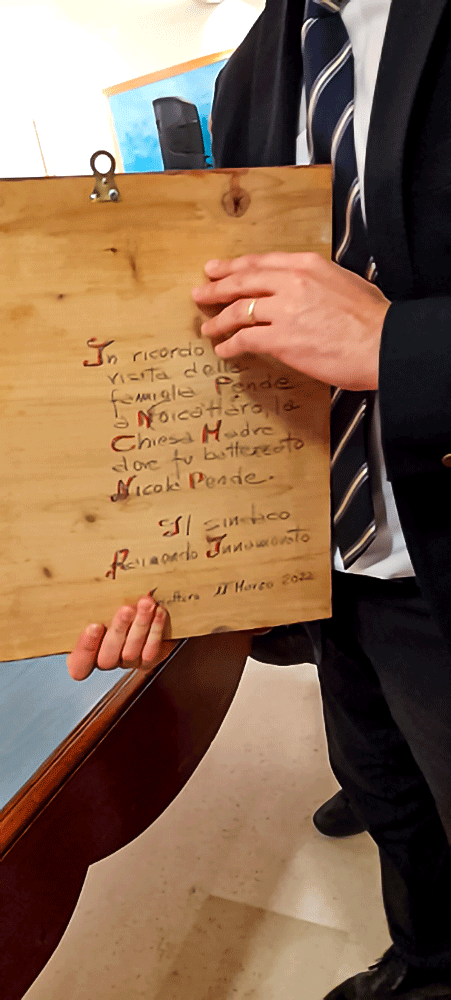 In ricordo
visita della
famiglia Pende
a Noicattaro, la
Chiesa Madre
dove fu battezzato
Nicola Pende.
Il sindaco
Raimondo Innamorato
11 Marzo 2022